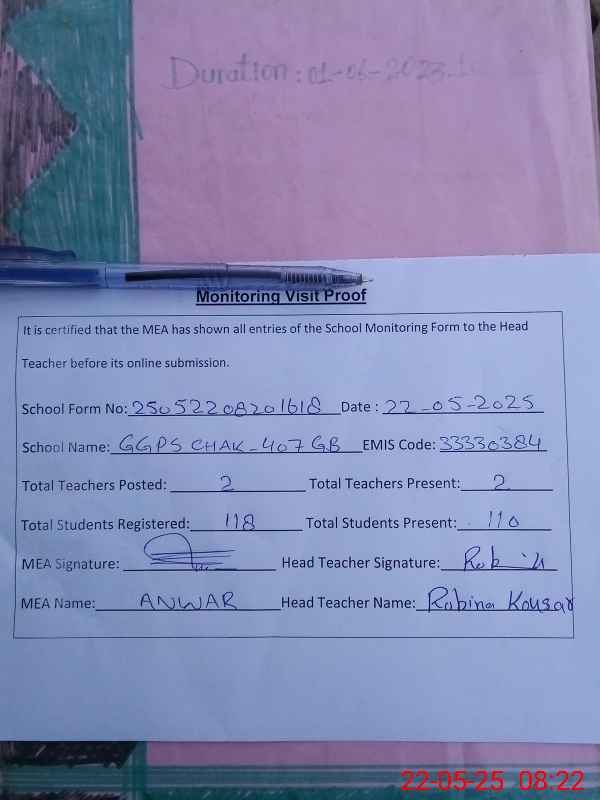 Duration: 01-06-2023
Monitoring Visit Proof
It is certified that the MEA has shown all entries of the School Monitoring Form to the Head
Teacher before its online submission.
School Form No: 25052208201618 Date : 22-05-2025
School Name: GGPS CHAK-407 GB EMIS Code: 33330384
Total Teachers Posted: 2 Total Teachers Present: 2
Total Students Registered: 118 Total Students Present: 110
MEA Signature: Head Teacher Signature:
MEA Name: ANWAR Head Teacher Name: Robina Kousar
22-05-25 08:22